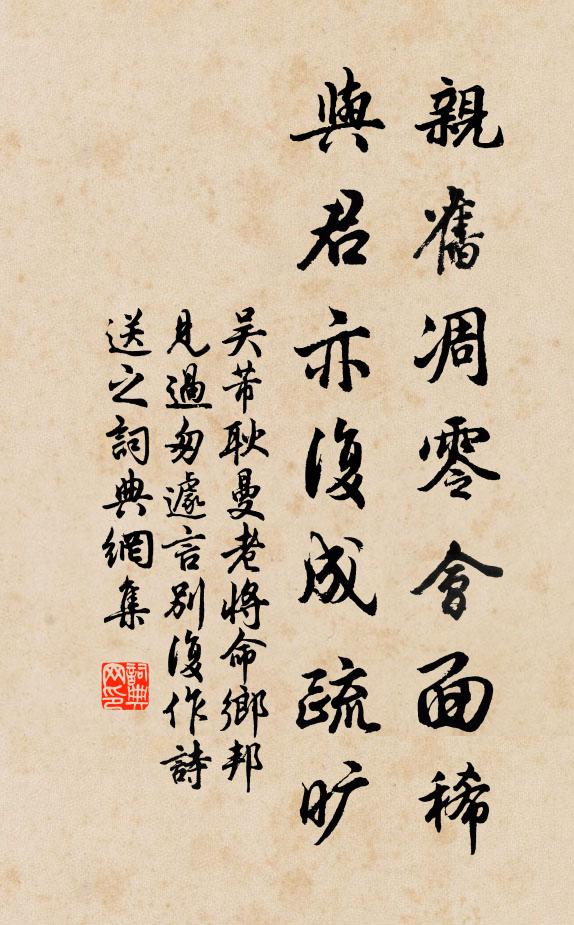 親舊凋零會面稀
與君亦復成疏旷
吴芾耿曼老將命鄉邦
見過匆遽言別復作詩
送之詞典網集
詞典网印